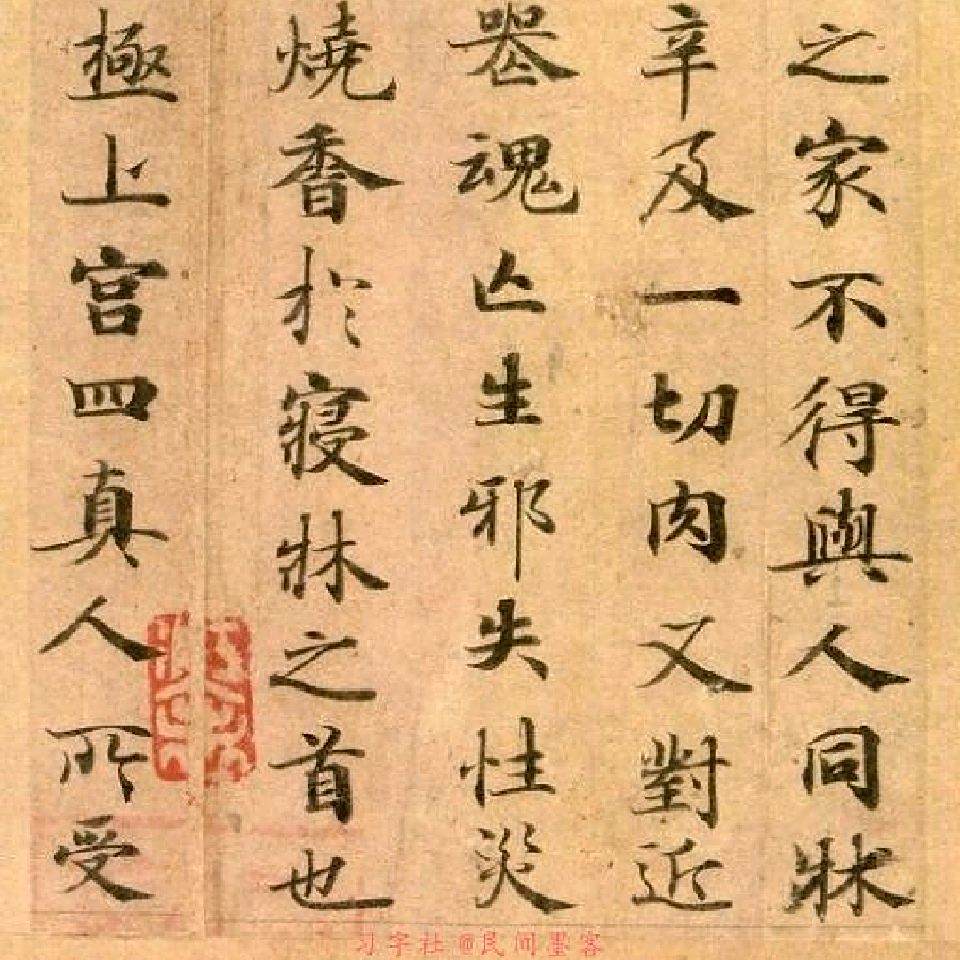 之家不得與人同牀
辛及一切肉又對近
喪魂亡生邪失性災
燒香於寢牀之首也
極上宮四真人所受
习字社 @民间墨客